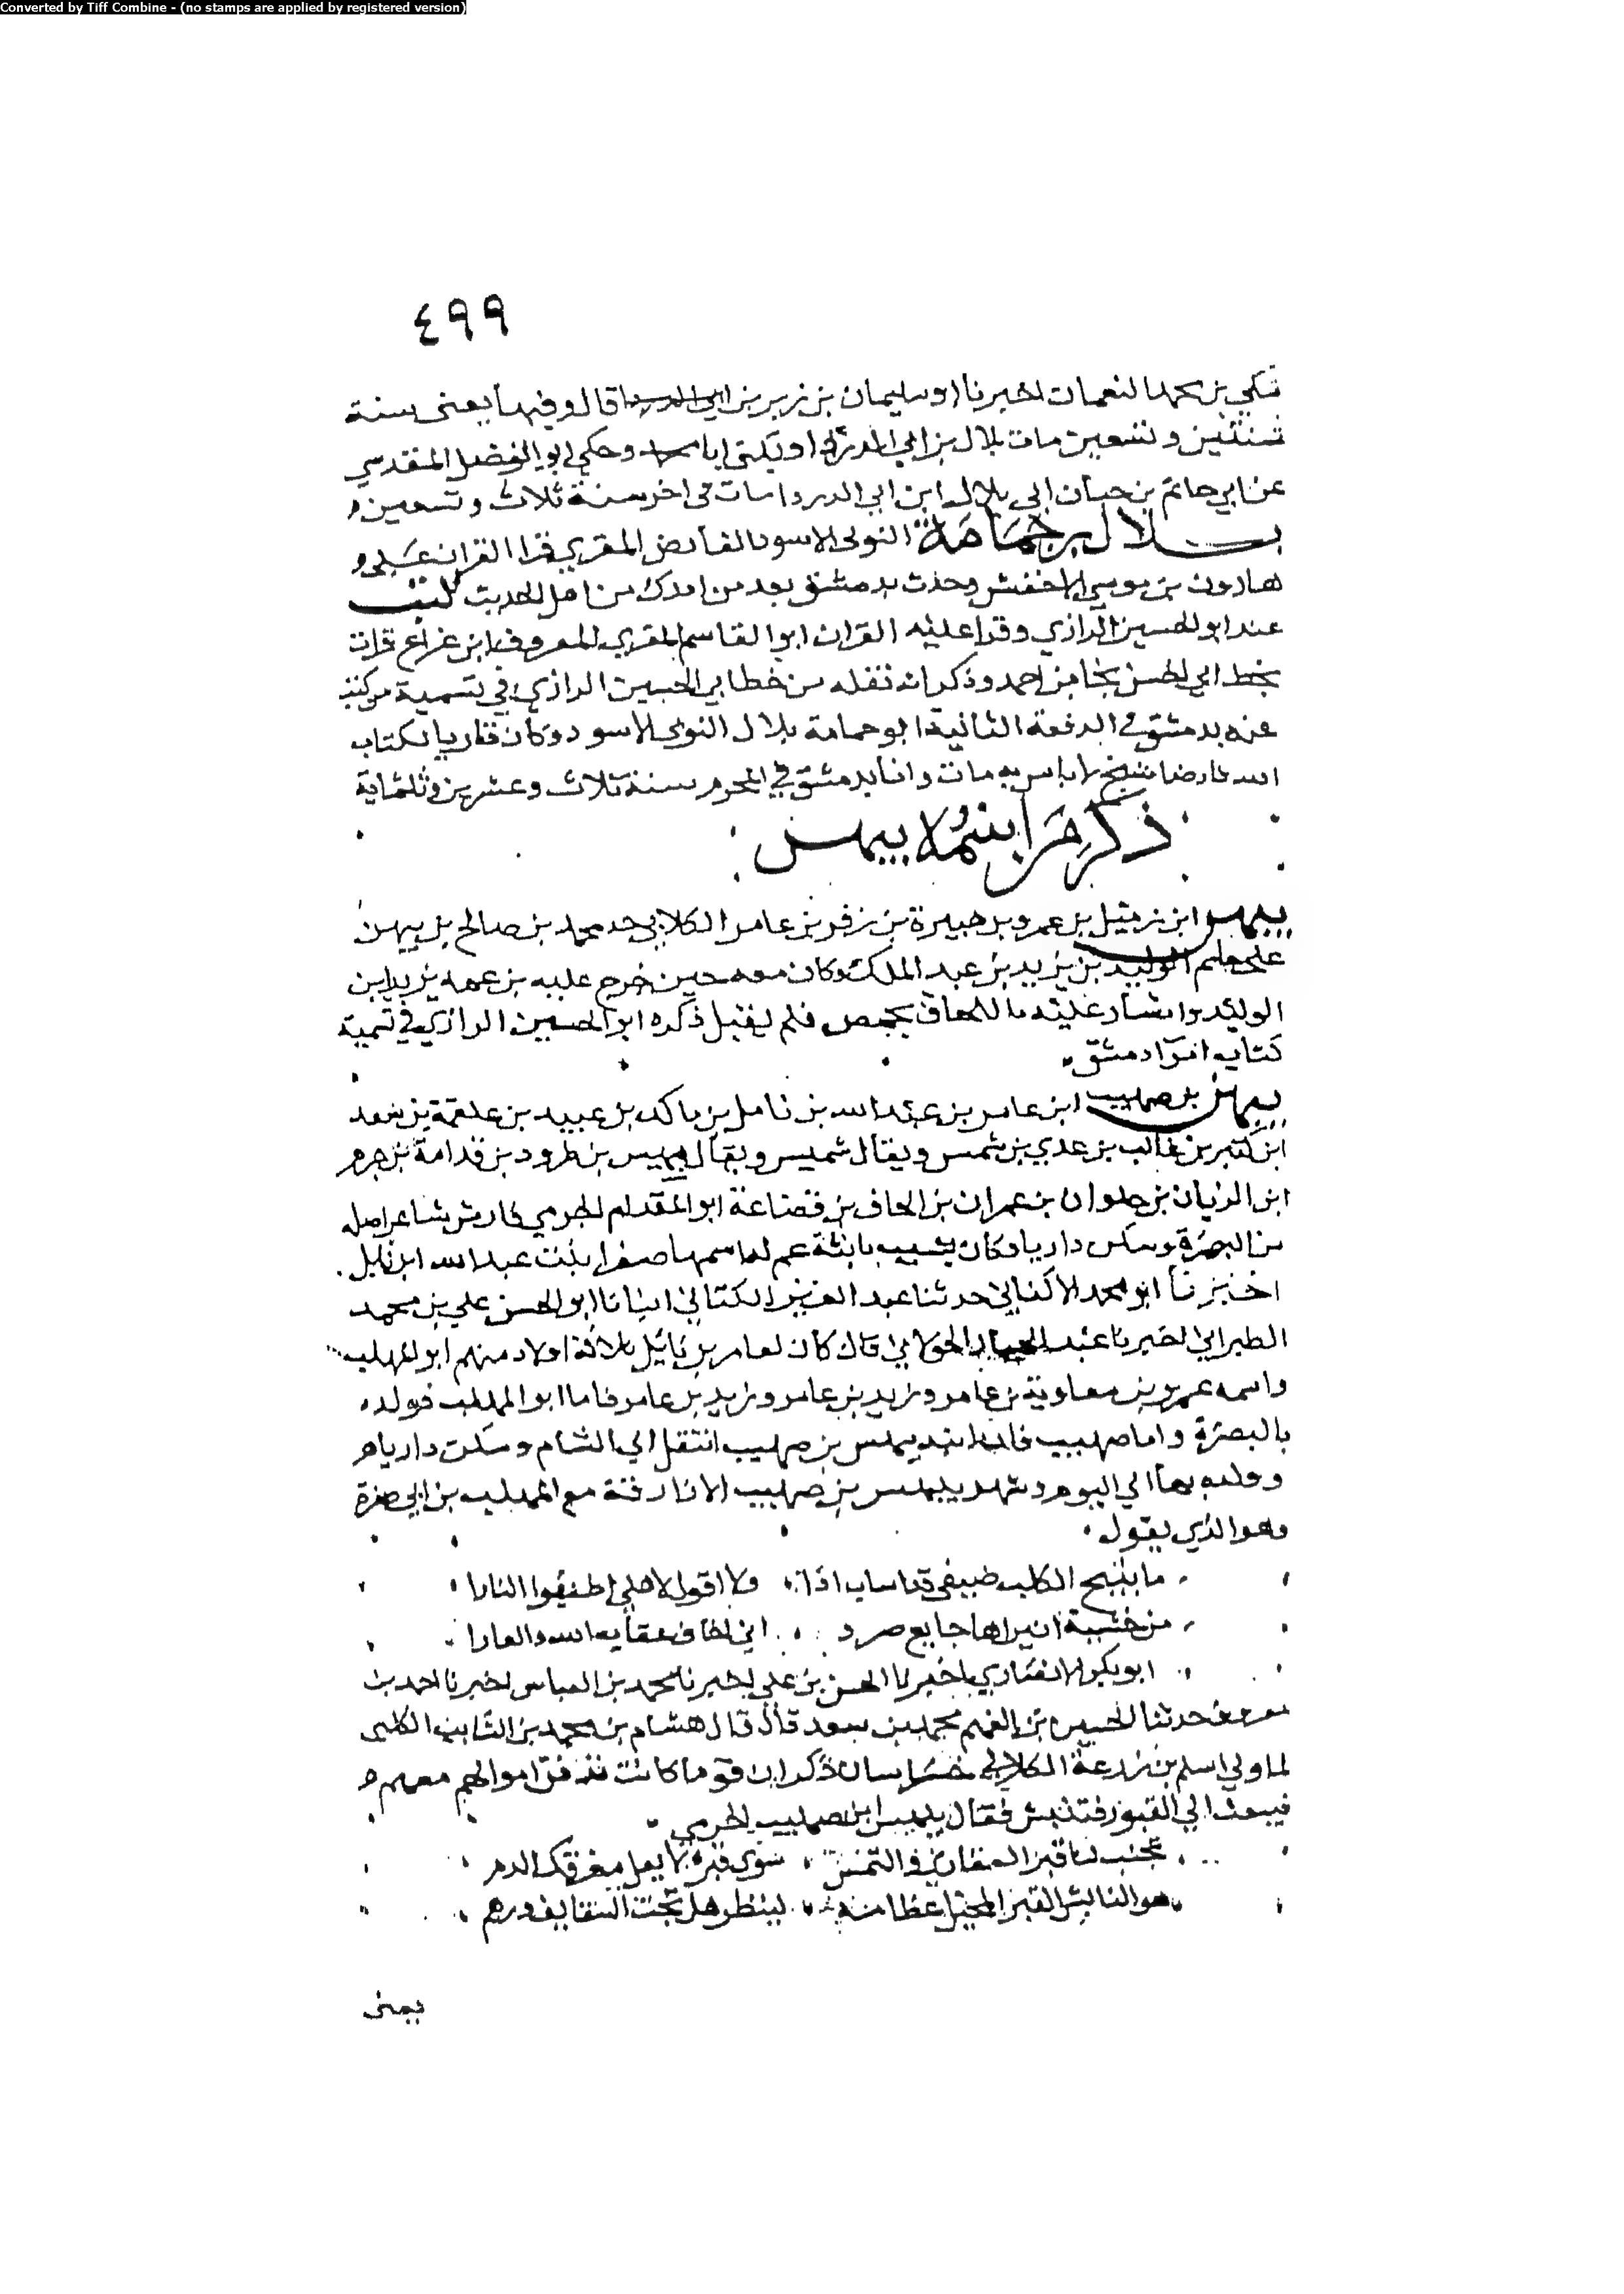 Converted by Tiff Combine - (no stamps are applied by registered version)
٤٩٩
مكي بن محمد النعمان اخبرنا ابو سليمان بن زبر بن ابي الدردا قال وفيها يعنى سنة
ثنتين وتسعين مات بلال بن ابي الدردا ويكنى ابا محمد وحكى ابو الفضل المقدسي
عن ابي حاتم بن حبان ابي بلال ابن ابي الدرداء مات في اخر سنة ثلاث وتسعين
بلال بن حمامة النوبي الاسود الفارض المقري قرا القران على
هارون بن موسى الاخفش وحدث بدمشق بعد من ادرك من اهل الحديث كتب
عند ابو الحسين الرازي وقرا عليه القران ابو القاسم المقري المعروف بابن قرات
بخط ابي الحسن نجا بن احمد وذكر انه نقله من خط ابي الحسين الرازي في تسمية من كتب
عنه بدمشق في الدفعة الثانية ابو حمامة بلال النوبي الاسود وكان قاريا لكتاب
الله فارضا شيخ لا باس به مات وانا بدمشق في المحرم سنة ثلاث وعشرين وثلثماية
ذكر من اسمه بيهس
بيهس ابن زميل بن عمرو بن هبيرة بن زفر بن عامر الكلابي جد محمد بن صالح بن بيهس
على خاتم الوليد بن يزيد بن عبد الملك وكان معه حين خرج عليه بن عمه يزيد ابن
الوليد واشار عليه باللحاق بحمص فلم يقبل ذكره ابو الحسين الرازي في تسمية
كتابه امرا دمشق
بيهس بن صهيب ابن عامر بن عبد الله بن نامل بن مالك بن عبيد بن علقمة بن سعد
ابن كثير بن غالب بن عدي بن شمس ويقال شميس ويقال بيهس بن طرود بن قدامة بن جرم
ابن الريان بن حلوان بن عمران بن الحاف بن قضاعة ابو المقدام الجرمي فارس شاعر اصله
من البصرة وسكن داريا وكان يشبب بابنة عم له اسمها صفرا بنت عبد الله ابن نايل
اخبرنا ابو محمد الاكفاني حدثنا عبد العزيز الكتاني انبانا ابو الحسن علي بن محمد
الطبراني اخبرنا عبد الجبار الخولاني قال كان لعامر بن نايل ثلاثة اولاد منهم ابو المهلب
واسمه عمرو بن معاوية بن عامر وزيد بن عامر وزيد بن عامر فاما ابو المهلب فولده
بالبصرة واما صهيب فان ابنه بيهس بن صهيب انتقل الى الشام وسكن داريا
وولده بها الي اليوم وشهد بيهس بن صهيب الازارقة مع المهلب بن ابي صفرة
وهو الذي يقول
ما ينبح الكلب ضيفي ولا اقول لاهلي اطفيوا النارا
من خشية ان يراها جايع صرد اني اخاف عقاب الله والعارا
ابو بكر الانصاري اخبرنا الحسن بن علي اخبرنا محمد بن العباس اخبرنا احمد بن
معروف حدثنا الحسين بن الفهم محمد بن سعد قال قال هشام بن محمد بن السايب الكلبي
لما ولي اسلم بن زرعة الكلابي خراسان ذكر ان قوما كانت تدفن اموالهم معهم
فيبعث الي القبور فتنبش فقال بيهس ابن صهيب الجرمي
تجنب لنا قبر الغفاري والتمس سوى قبره لا يعل مفرقك الدم
هو النابش القبر المحيل عظامه لينظر هل تحت السقايف درهم
يعنى